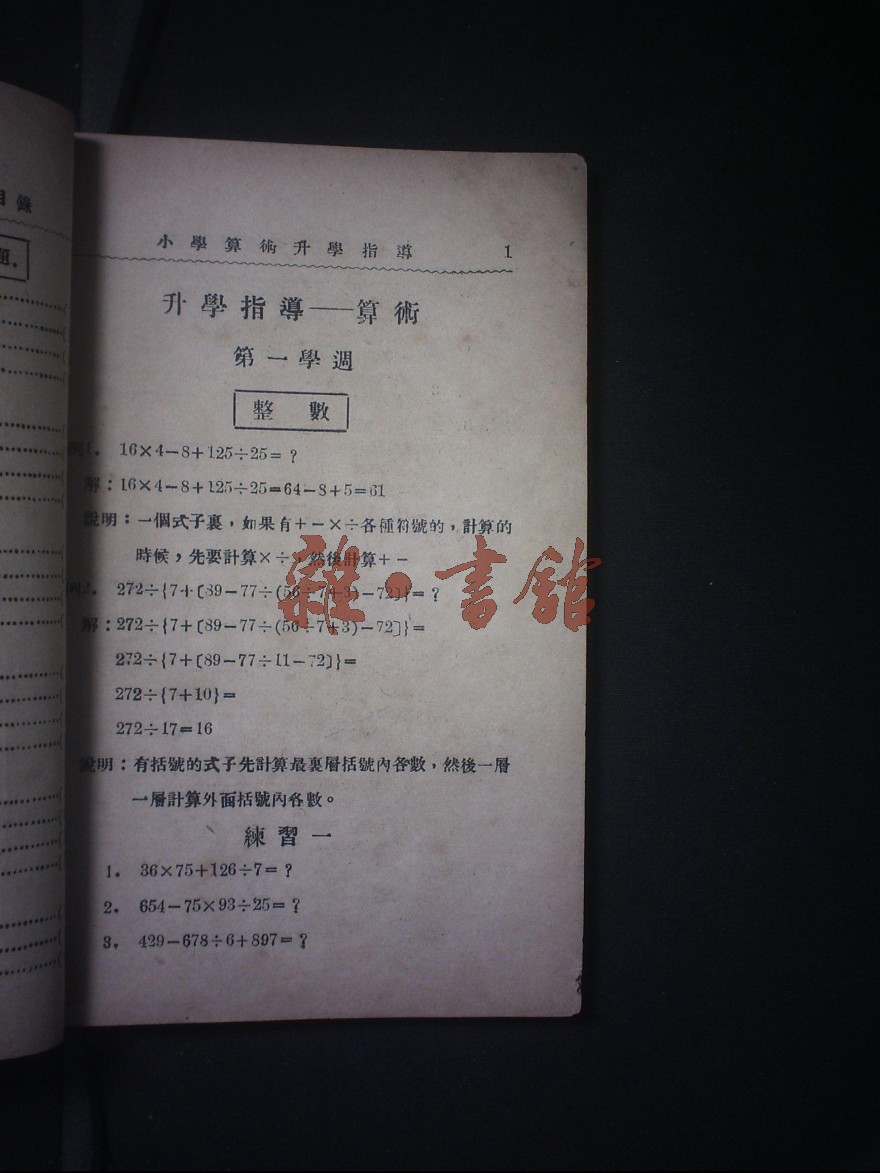 目錄
題.
小學算術升學指導 1
升學指導——算術
第一學週
整數
例1. 16×4−8+125÷25= ?
解:16×4−8+125÷25=64−8+5=61
說明:一個式子裏,如果有+−×÷各種符號的,計算的
時候,先要計算×÷,然後計算+−
例2. 272÷{7+〔89−77÷(56÷7+3)−72〕}= ?
解:272÷{7+〔89−77÷(56÷7+3)−72〕}=
272÷{7+〔89−77÷11−72〕}=
272÷{7+10}=
272÷17=16
說明:有括號的式子先計算最裏層括號內各數,然後一層
一層計算外面括號內各數。
練習一
1. 36×75+126÷7= ?
2. 654−75×93÷25= ?
3. 429−678÷6+897= ?
雜·書館